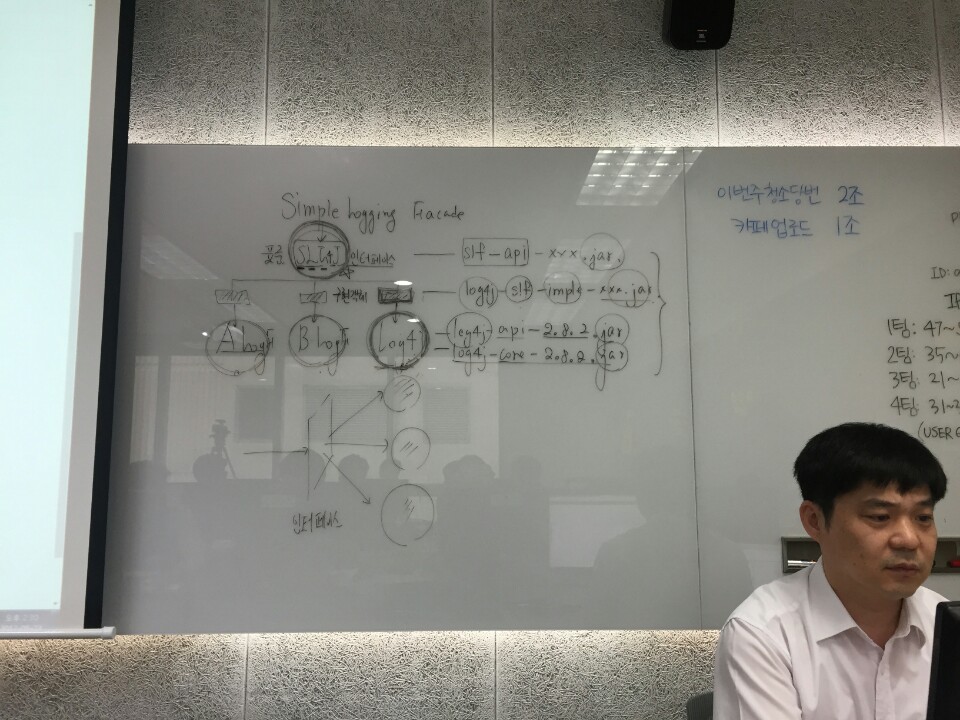 Simple Logging Facade
표준 SLF4J 인터페이스 — slf-api-xxx.jar
구현객체 — log4j-slf-impl-xxx.jar
A Log BLog Log4 — log4j-api-2.8.2.jar
log4j-core-2.8.2.jar
인터페이스
이번주청소당번 2조
카페업로드 1조
ID:
1팀: 47~
2팀: 35~
3팀: 21~
4팀: 31~
(USER